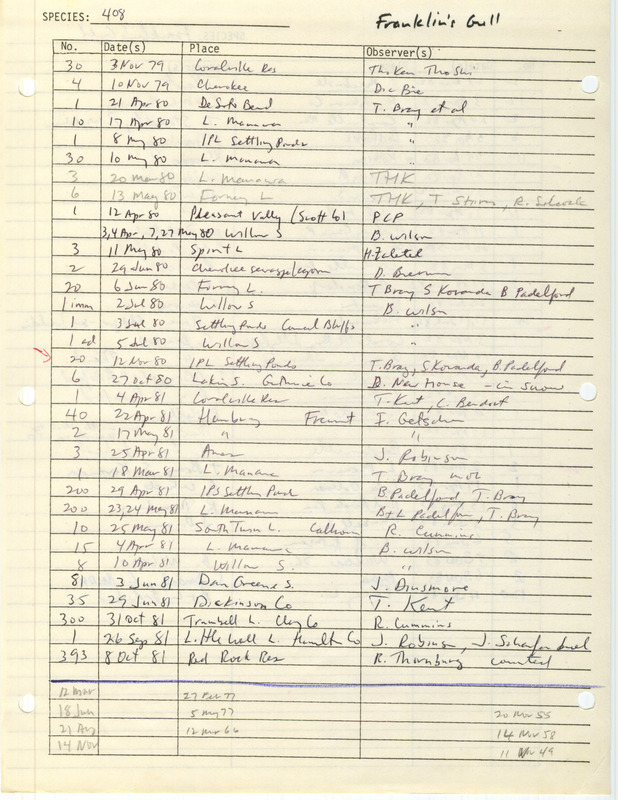 SPECIES: 408 Franklin's Gull
No. Date(s) Place Observer(s)
30 3 Nov 79 Coralville Res
4 10 Nov 79 Cherokee
1 21 Apr 80 DeSoto Bend T. Bray et al
10 17 Apr 80 L. Manawa "
1 8 May 80 IPL Settling Ponds "
30 10 May 80 L. Manawa "
3 20 Mar 80 L. Manawa THK
6 13 May 80 Forney L THK, T
1 12 Apr 80 Pleasant Valley (Scott Co) PCP
3,4 Apr, 7,27 May 80 Willow S B. Wilson
3 11 May 80 Spirit L H. Zaletel
2 29 Jun 80 Cherokee
20 6 Jun 80 Forney L. T Bray S Kovanda B Padelford
1 imm 2 Jul 80 Willow S B. Wilson
1 3 Jul 80 Settling Ponds Council Bluffs "
1 ad 5 Jul 80 Willow S "
20 12 Nov 80 IPL Settling Ponds T. Bray, S Kovanda, B. Padelford
6 27 Oct 80 Lakin S. Guthrie Co D. New House - in snow
1 4 Apr 81 Coralville Res T. Kent, C. Bendorf
40 22 Apr 81 Hamburg Fremont
2 17 May 81 " "
3 25 Apr 81 J. Robinson
1 18 Mar 81 L. Manawa T Bray
200 29 Apr 81 IPS Settling Pond B. Padelford T. Bray
200 23,24 May 81 L. Manawa B+L Padelford, T. Bray
10 25 May 81 South Twin L. Calhoun R. Cummins
15 4 Apr 81 L. Manawa B. Wilson
8 10 Apr 81 Willow S. "
81 3 Jun 81 Dan Greene S. J. Dinsmore
35 29 Jun 81 Dickinson Co T. Kent
300 31 Oct 81 Trumbull L. Clay Co R. Cummins
1 26 Sep 81 Little Wall L. Hamilton Co J. Robinson, J.
393 8 Oct 81 Red Rock Res R. Thornburg counted
12 Mar 27 Feb 77
18 Jun 5 May 77 20 Nov 55
21 Aug 12 Mar 66 14 Nov 58
14 Nov 11 Nov 49